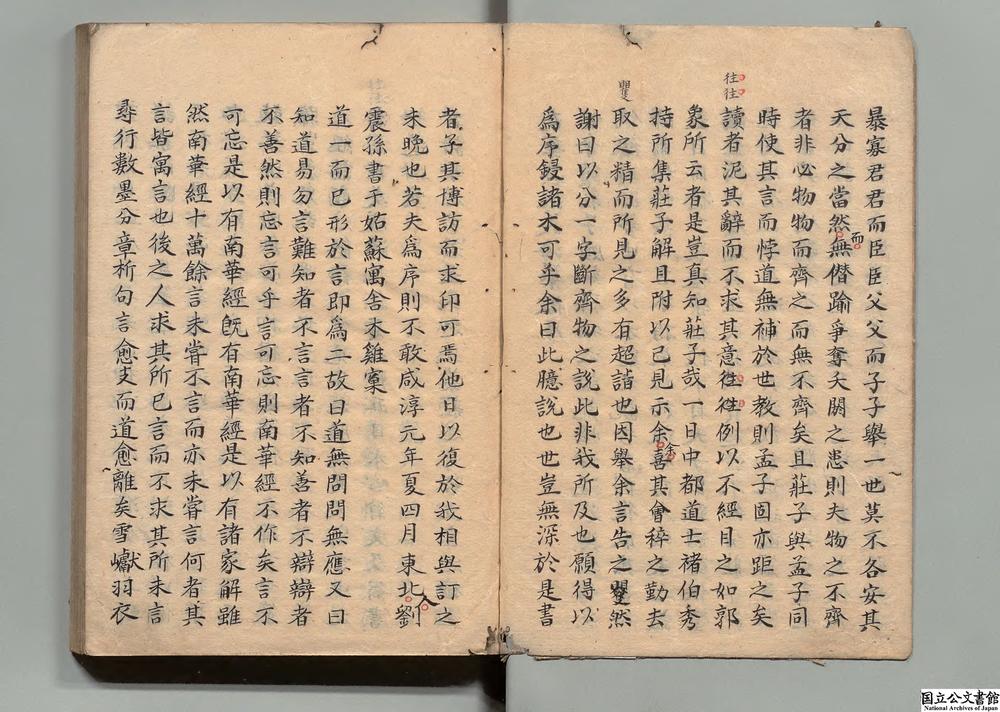 暴寡君君而臣臣父父而子子舉一世莫不各安其
天分之當然無僭踰爭奪夭閼之患則夫物之不齊
而
者非必物物而齊之而無不齊矣且莊子與孟子同
時使其言而悖道無補於世教則孟子固亦距之矣
往往
讀者泥其辭而不求其意往往例以不經目之如郭
象所云者是豈真知莊子哉一日中都道士褚伯秀
持所集莊子解且附以己見示余喜其會稡之勤去
余
取之精而所見之多有超詣也因舉余言告之矍然
矍
謝曰以分一字斷齊物之說此非我所及也願得以
爲序鋟諸木可乎余曰此臆說也世豈無深於是書
者子其博訪而求印可焉他日以復於我相與訂之
未晚也若夫爲序則不敢咸淳元年夏四月東北劉
人
震孫書于姑蘇寓舍木雞窠
道一而已形於言即爲二故曰道無問問無應又曰
知道易勿言難知者不言言者不知善者不辯辯者
不善然則忘言可乎言可忘則南華經不作矣言不
可忘是以有南華經旣有南華經是以有諸家解雖
然南華經十萬餘言未嘗不言而亦未嘗言何者其
言皆寓言也後之人求其所已言而不求其所未言
尋行數墨分章析句言愈支而道愈離矣雪巘羽衣
国立公文書館
National Archives of Japan